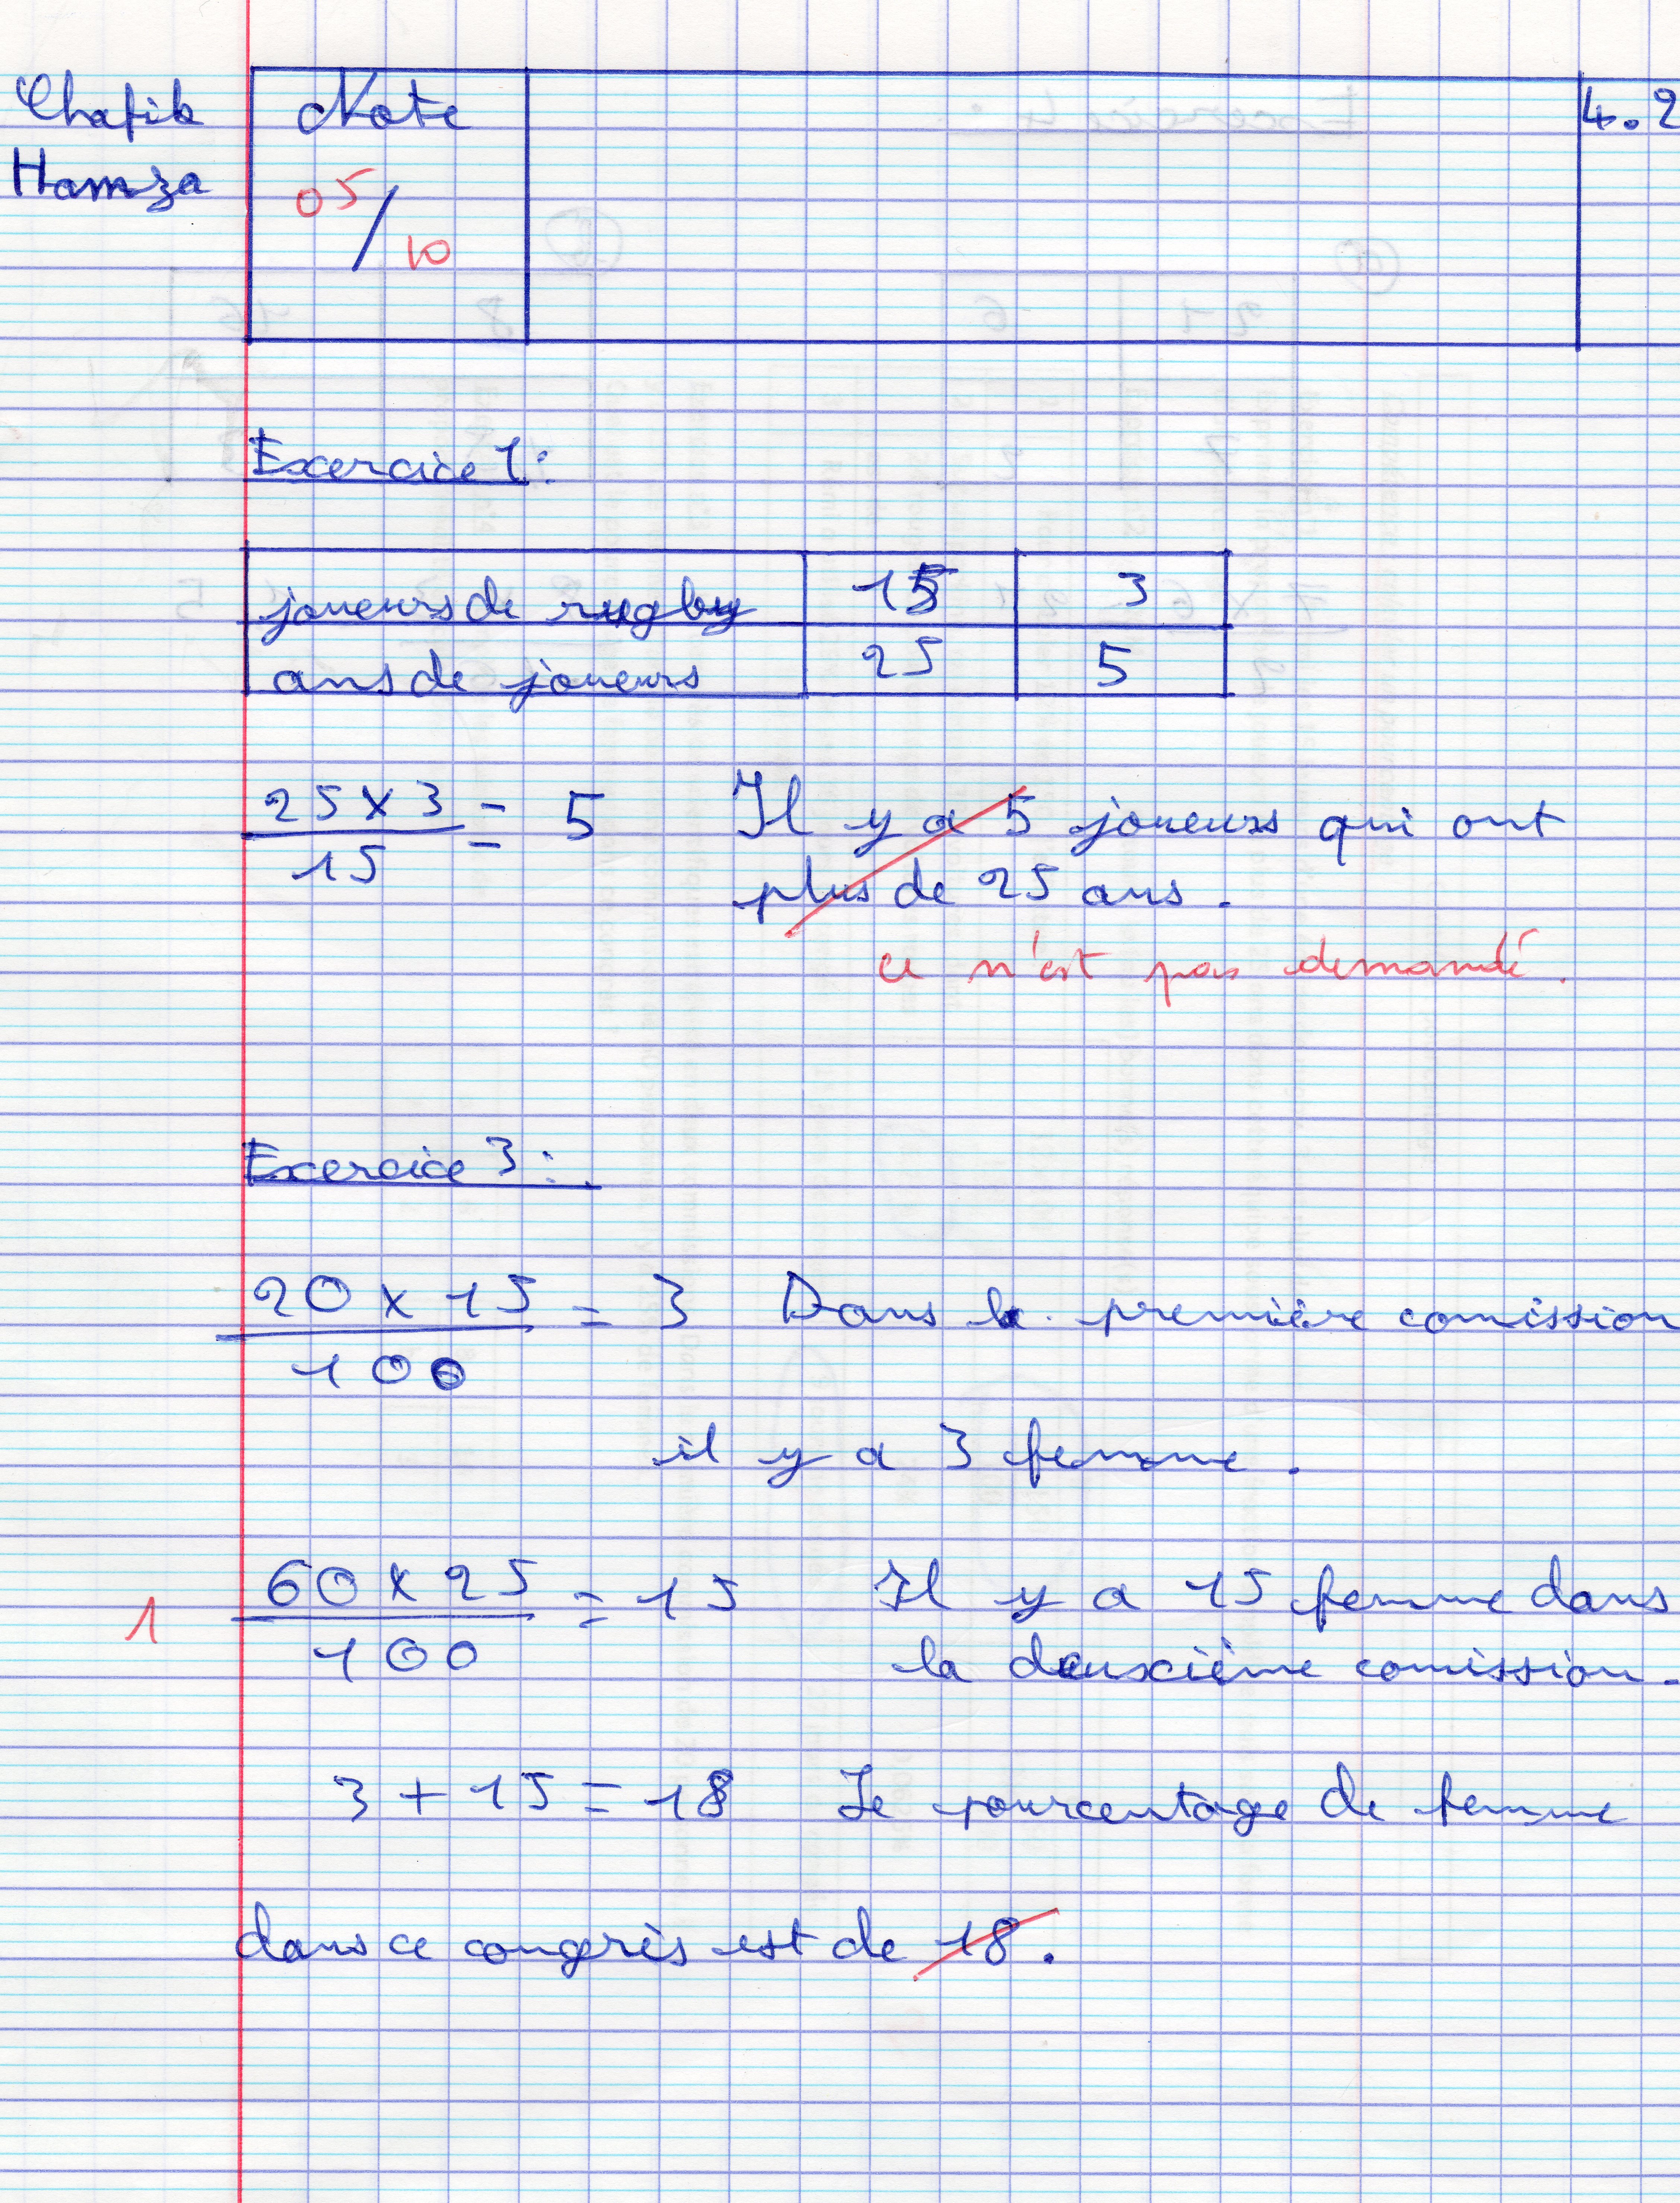 Chafik
Hamza
Note
05/10
4.2
Exercice 1:
joueurs de rugby 15 3
ans de joueurs 25 5
25 x 3 / 15 = 5 Il y a 5 joueurs qui ont
plus de 25 ans.
ce n'est pas demandé.
Exercice 3:
20 x 15 / 100 = 3 Dans la première comission
il y a 3 femme.
1
60 x 25 / 100 = 15 Il y a 15 femme dans
la deuxième comission.
3 + 15 = 18 Le pourcentage de femme
dans ce congrès est de 18.